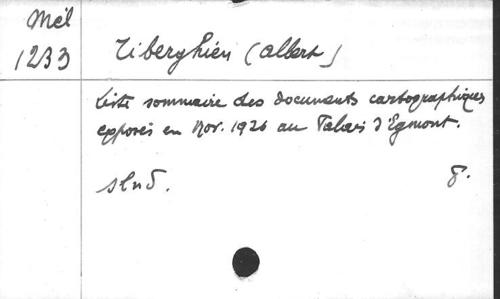 Mél
1233
Tiberghien (Albert)
Liste sommaire des documents cartographiques
exposés en Nov. 1926 au Palais d'Egmont.
slnd. 8.